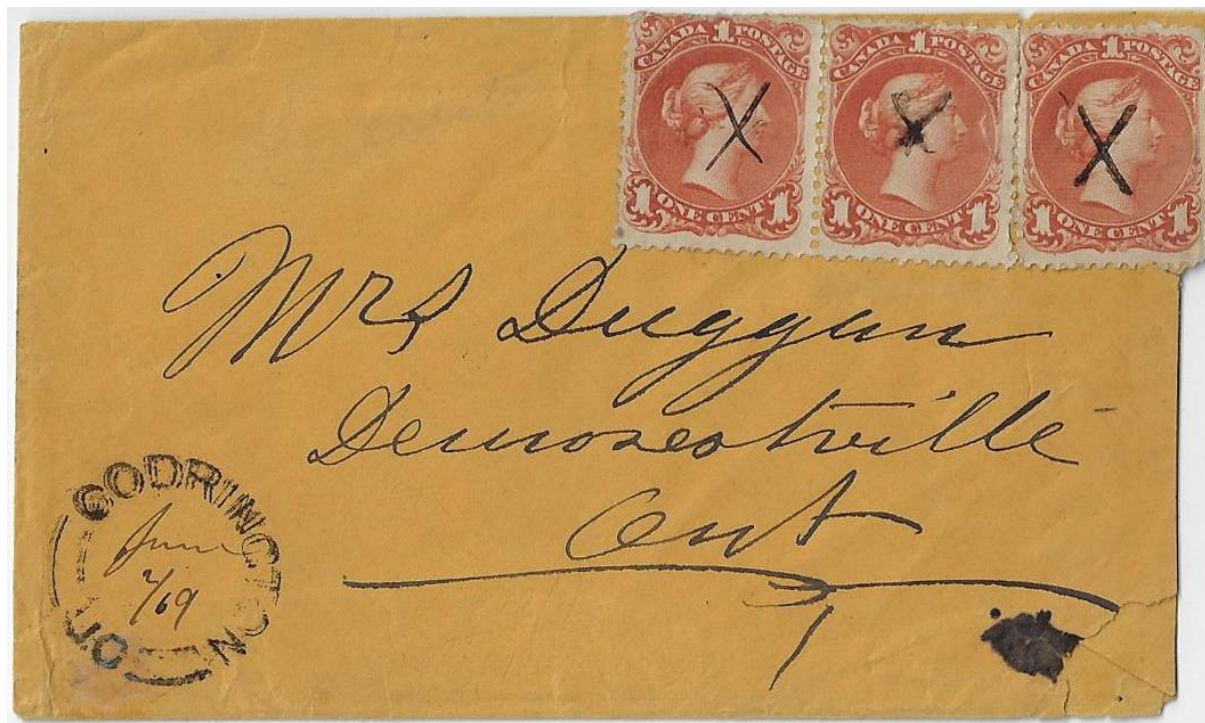 CANADA 1 POSTAGE
1 ONE CENT 1
CANADA 1 POSTAGE
1 ONE CENT 1
CANADA 1 POSTAGE
1 ONE CENT 1
Mrs Duggan
Demorestville
Ont
CODRINGTON
June